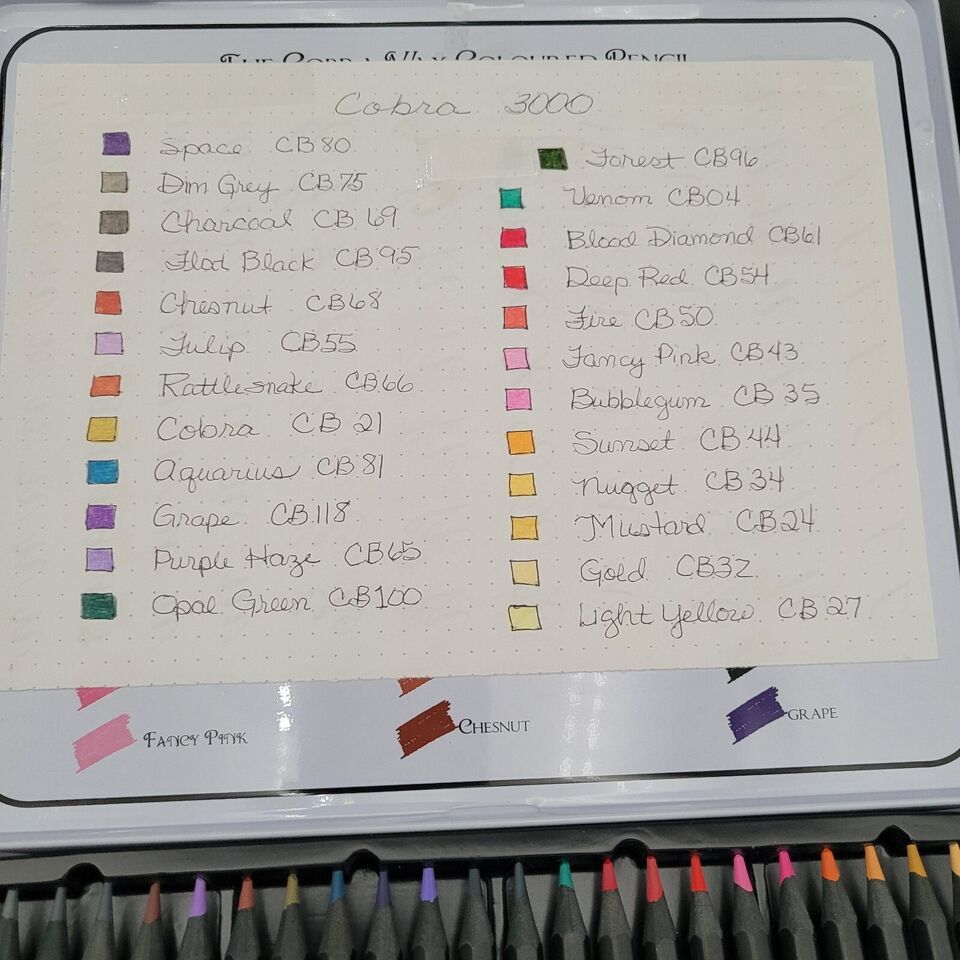 THE COBRA WAX COLOURED PENCIL
Cobra 3000
Space CB80
Dim Grey CB75
Charcoal CB69
Flat Black CB95
Chesnut CB68
Tulip CB55
Rattlesnake CB66
Cobra CB21
Aquarius CB81
Grape CB118
Purple Haze CB65
Opal Green CB100
Forest CB96
Venom CB04
Blood Diamond CB61
Deep Red CB54
Fire CB50
Fancy Pink CB43
Bubblegum CB35
Sunset CB44
Nugget CB34
Mustard CB24
Gold CB32
Light Yellow CB27
FANCY PINK
CHESNUT
GRAPE